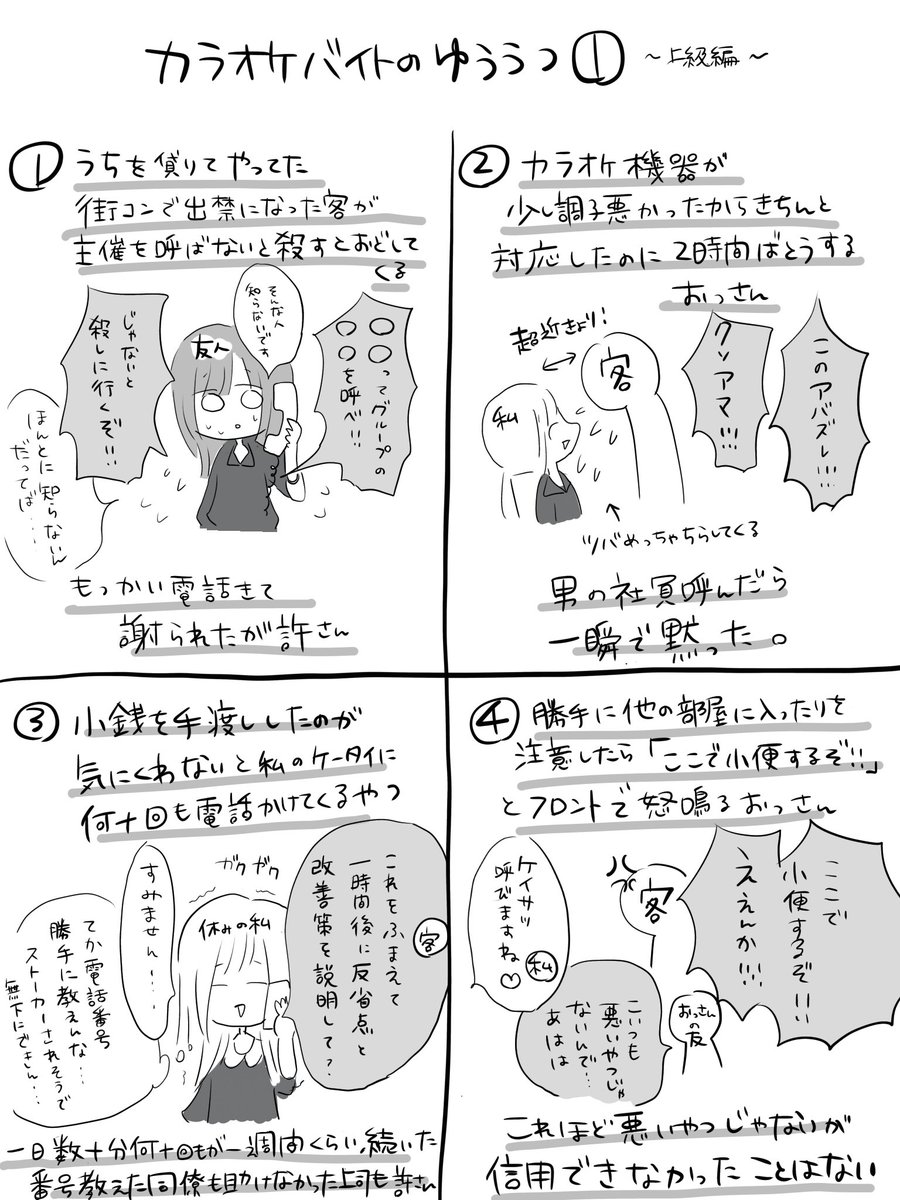 カラオケバイトのゆううつ① ～上級編～
① うちを貸りてやってた
街コンで出禁になった客が
主催を呼ばないと殺すとおどして
くる
○○ってグループの
○○を呼べ!!
そんな人
知らないです
友人
じゃないと
殺しに行くぞ!!!
ほんとに知らないん
だってば…
もっかい電話きて
謝られたが許さん
② カラオケ機器が
少し調子悪かったからきちんと
対応したのに2時間ばとうする
おっさん
このアバズレ!!!
クソアマ!!!
超近きょり!
客
私
ツバめっちゃちらしてくる
男の社員呼んだら
一瞬で黙った。
③ 小銭を手渡ししたのが
気にくわないと私のケータイに
何十回も電話かけてくるやつ
これをふまえて
一時間後に反省点と
改善策を説明して?
客
ガクガク
休みの私
すみません…
てか電話番号
勝手に教えんな…
ストーカーされそうで
無下にできん…
一日数十分何十回もが一週間くらい続いた
番号教えた同僚も助けなかった上司も許さん
④ 勝手に他の部屋に入ったりを
注意したら「ここで小便するぞ!!」
とフロントで怒鳴るおっさん
ここで
小便するぞ!!!
ええんか!!!
客
ケイサツ
呼びますね♡
私
おっさん
の友
こいつも
悪いやつじゃ
ないんで…
あはは
これほど悪いやつじゃないが
信用できなかったことはない